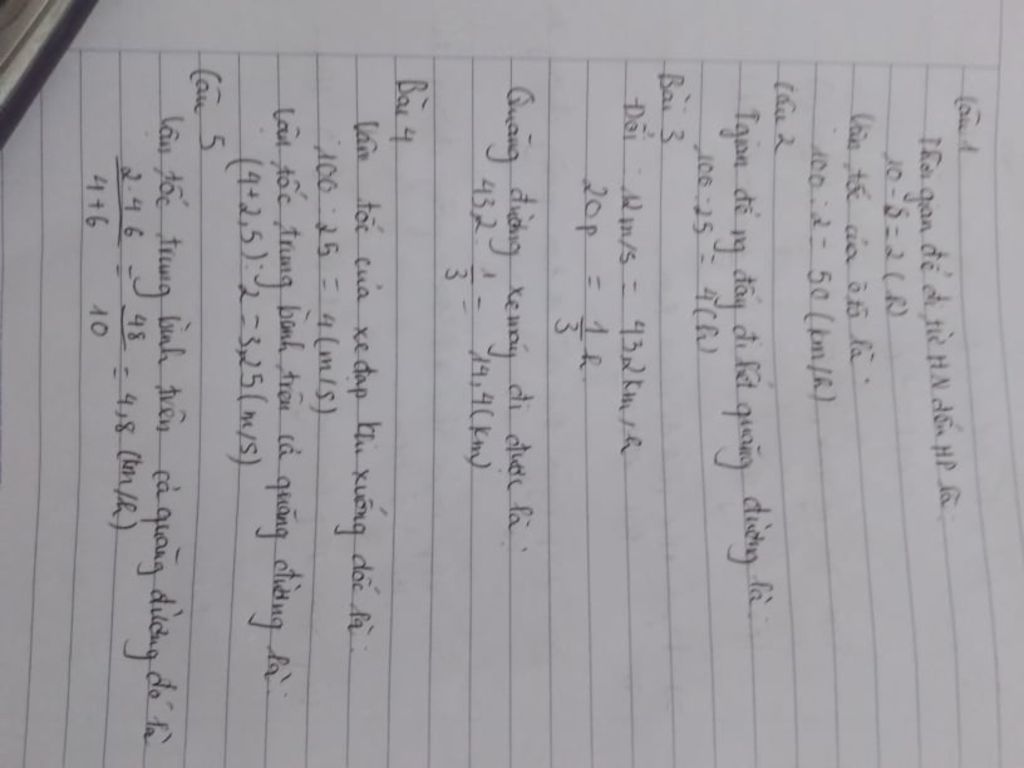 Câu 1
Thời gian để đi từ HN đến HP là:
10 - 8 = 2 (h)
Vận tốc của ô tô là:
100 : 2 = 50 (km/h)
Câu 2
T gian để ng đấy đi hết quãng đường là:
100 : 25 = 4 (h)
Bài 3
Đổi 12m/s = 43,2km/h
20p = 1/3 h
Quãng đường xe máy đi được là:
43,2 . 1/3 = 14,4 (km)
Bài 4
Vân tốc của xe đạp khi xuống dốc là:
100 : 25 = 4 (m/s)
Vân tốc trung bình trên cả quãng đường là:
(4 + 2,5) : 2 = 3,25 (m/s)
Câu 5
Vân tốc trung bình trên cả quãng đường đó là
2.4.6 / 4+6 = 48 / 10 = 4,8 (km/h)